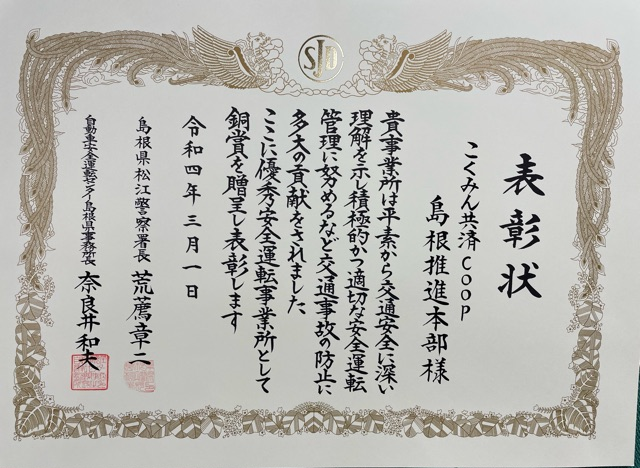 SJD
表彰状
こくみん共済coop
島根推進本部様
貴事業所は平素から交通安全に深い
理解を示し積極的かつ適切な安全運転
管理に努めるなど交通事故の防止に
多大の貢献をされました
ここに優秀安全運転事業所として
銅賞を贈呈し表彰します
令和四年三月一日
島根県松江警察署長 荒薦章二
自動車安全運転センター島根県事務所長 奈良井和夫